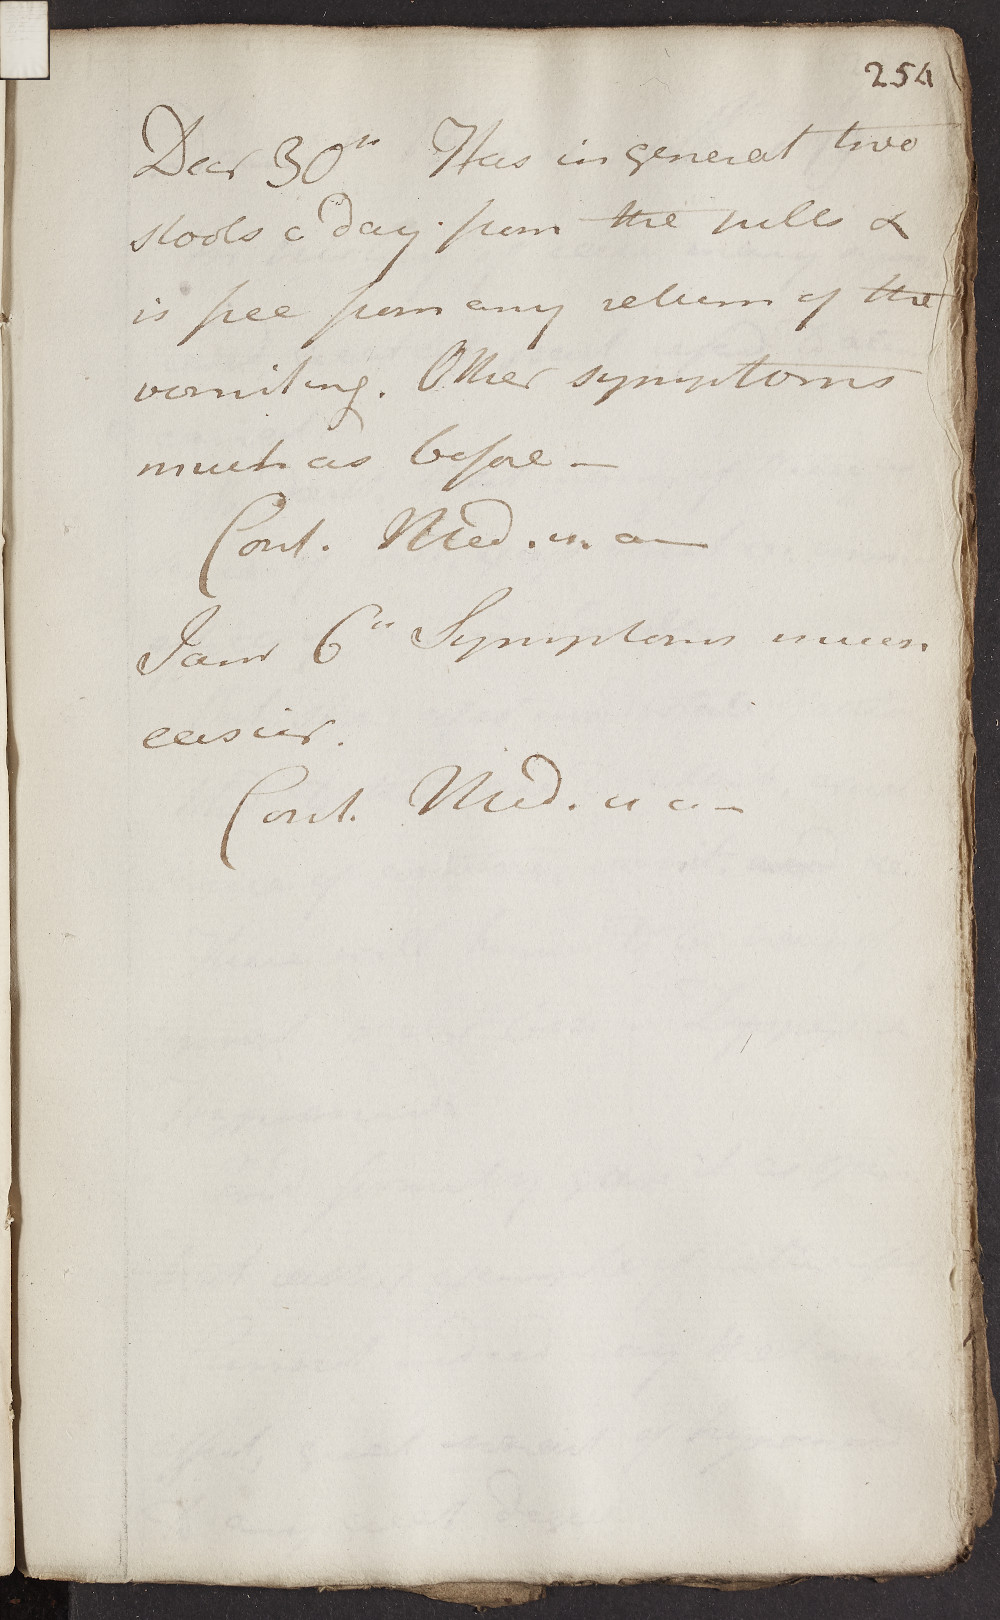 254
Decr 30th Has in general two
stools a day from the pills &
is free from any return of the
vomiting. Other symptoms
much as before –
Cont. Med. u. a –
Janr 6th Symptoms much
easier.
Cont. Med. u a –